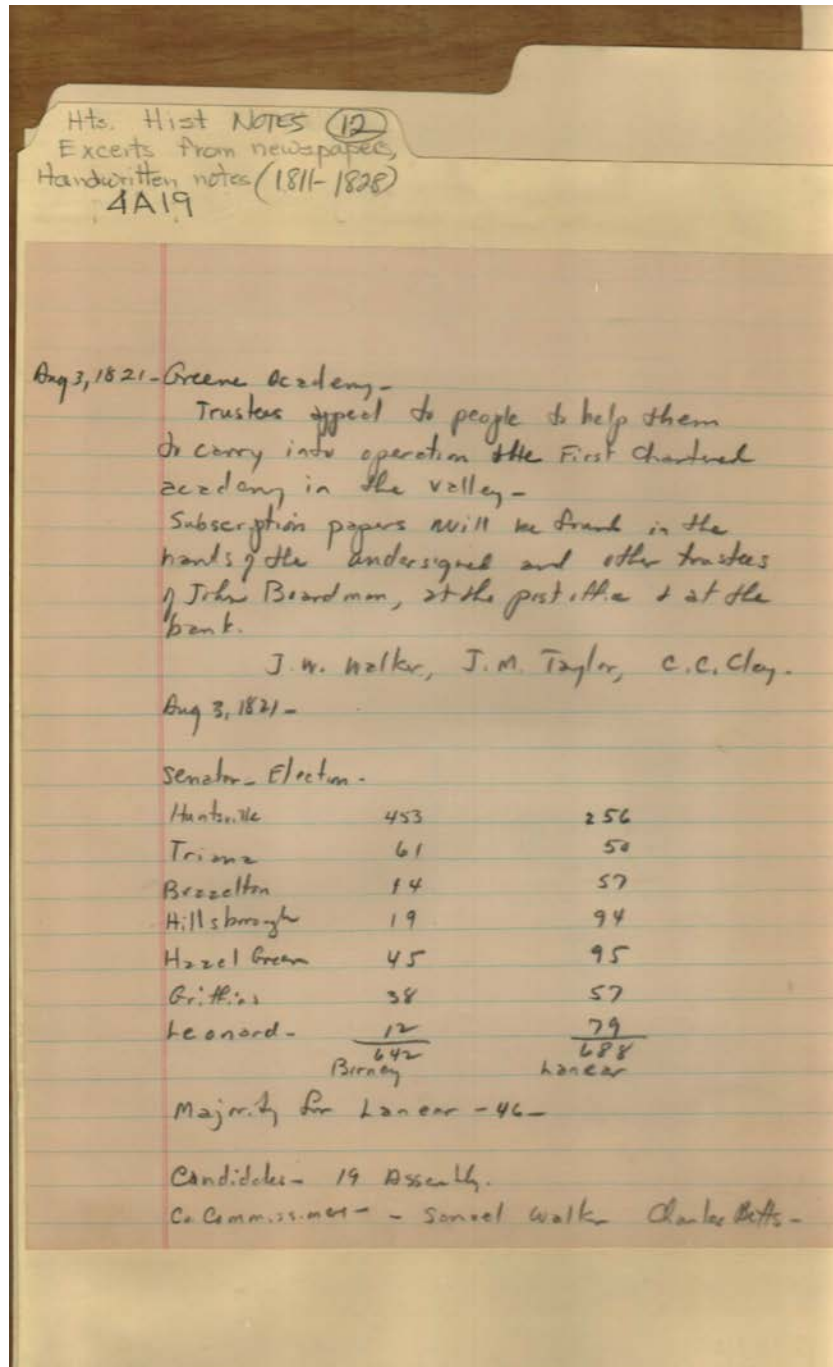 Hts. Hist NOTES (12)
Excerts from newspapers,
Handwritten notes (1811-1828)
4A19
Aug 3, 1821 - Greene Academy -
Trustees appeal to people to help them
to carry into operation the First Chartered
academy in the valley -
Subscription papers will be found in the
hands of the undersigned and other trustees
of John Boardman, at the post office & at the
bank.
J. W. Walker, J. M. Taylor, C. C. Clay.
Aug 3, 1821 -
Senator - Election -
Huntsville 453 256
Triana 61 50
Brazelton 14 57
Hillsborough 19 94
Hazel Green 45 95
Griffins 38 57
Leonard - 12 79
642 688
Birney Lanear
Majority for Lanear - 46 -
Candidates - 19 Assembly.
Co. Commissioners - - Samuel Walker Charles Betts -